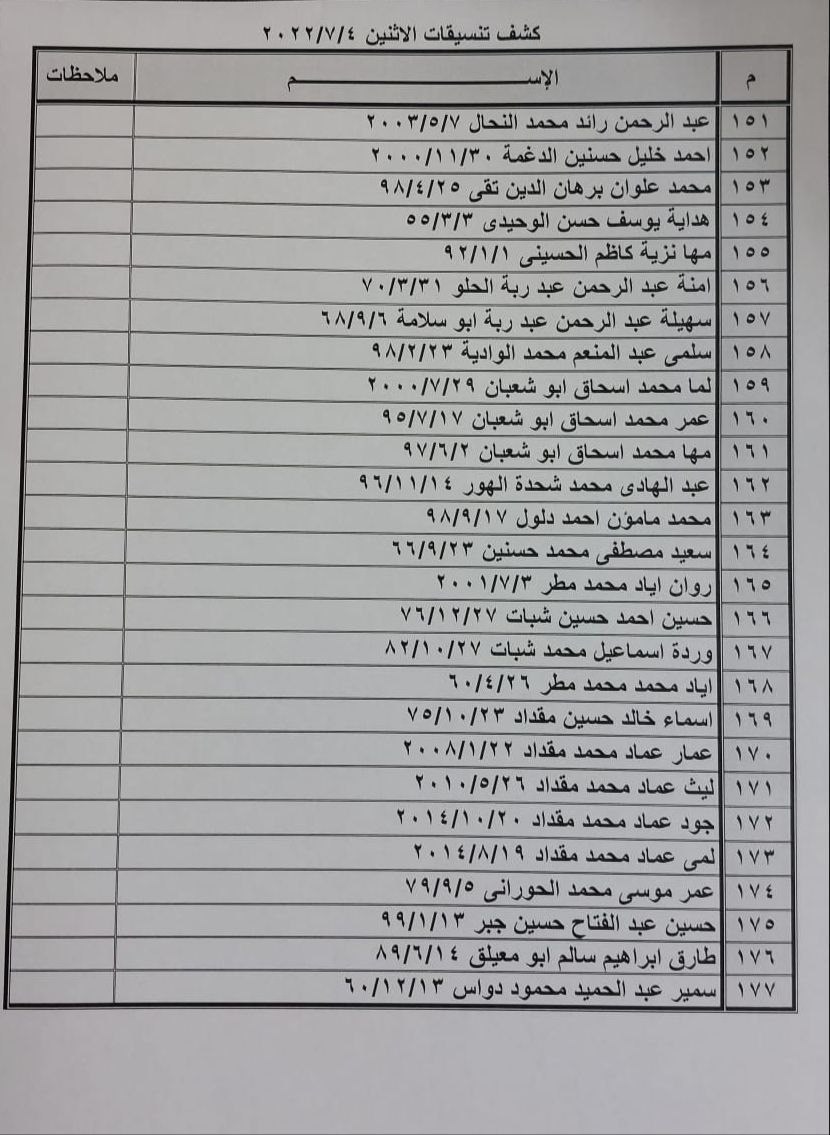 كشف تنسيقات الاثنين ٢٠٢٢/٧/٤
م الإســـــــــــــم ملاحظات
١٥١ عبد الرحمن رائد محمد النحال ٢٠٠٣/٥/٧
١٥٢ احمد خليل حسنين الدغمة ٢٠٠٠/١١/٣٠
١٥٣ محمد علوان برهان الدين تقى ٩٨/٤/٢٥
١٥٤ هداية يوسف حسن الوحيدى ٥٥/٣/٣
١٥٥ مها نزية كاظم الحسينى ٩٢/١/١
١٥٦ امنة عبد الرحمن عبد ربة الحلو ٧٠/٣/٣١
١٥٧ سهيلة عبد الرحمن عبد ربة ابو سلامة ٦٨/٩/٦
١٥٨ سلمى عبد المنعم محمد الوادية ٩٨/٢/٢٣
١٥٩ لما محمد اسحاق ابو شعبان ٢٠٠٠/٧/٢٩
١٦٠ عمر محمد اسحاق ابو شعبان ٩٥/٧/١٧
١٦١ مها محمد اسحاق ابو شعبان ٩٧/٦/٢
١٦٢ عبد الهادى محمد شحدة الهور ٩٦/١١/١٤
١٦٣ محمد مامؤن احمد دلول ٩٨/٩/١٧
١٦٤ سعيد مصطفى محمد حسنين ٦٦/٩/٢٣
١٦٥ روان اياد محمد مطر ٢٠٠١/٧/٣
١٦٦ حسين احمد حسين شبات ٧٦/١٢/٢٧
١٦٧ وردة اسماعيل محمد شبات ٨٢/١٠/٢٧
١٦٨ اياد محمد محمد مطر ٦٠/٤/٢٦
١٦٩ اسماء خالد حسين مقداد ٧٥/١٠/٢٣
١٧٠ عمار عماد محمد مقداد ٢٠٠٨/١/٢٢
١٧١ ليث عماد محمد مقداد ٢٠١٠/٥/٢٦
١٧٢ جود عماد محمد مقداد ٢٠١٤/١٠/٢٠
١٧٣ لمى عماد محمد مقداد ٢٠١٤/٨/١٩
١٧٤ عمر موسى محمد الحورانى ٧٩/٩/٥
١٧٥ حسين عبد الفتاح حسين جبر ٩٩/١/١٣
١٧٦ طارق ابراهيم سالم ابو معيلق ٨٩/٦/١٤
١٧٧ سمير عبد الحميد محمود دواس ٦٠/١٢/١٣